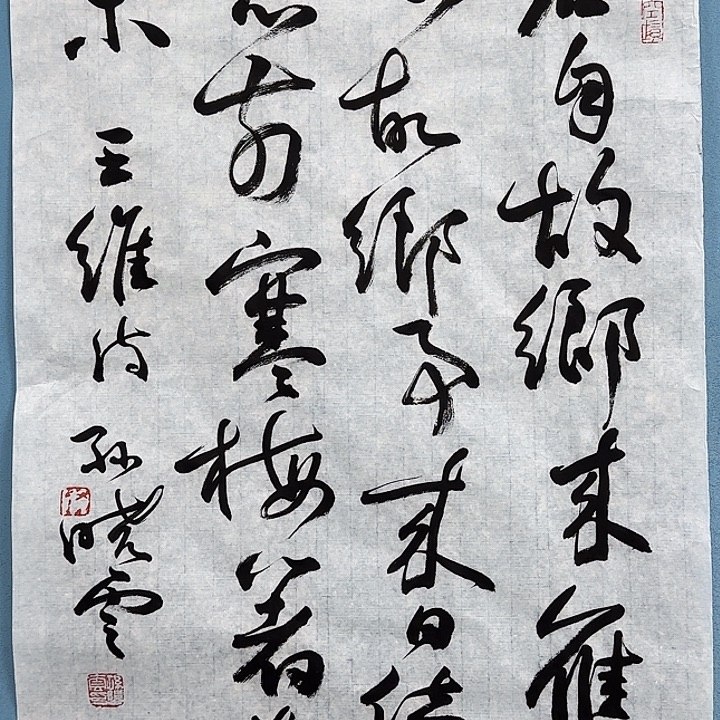 君自故鄉來應
知故鄉事來日绮
窓前寒梅著花
未 王維詩 孫曉雲